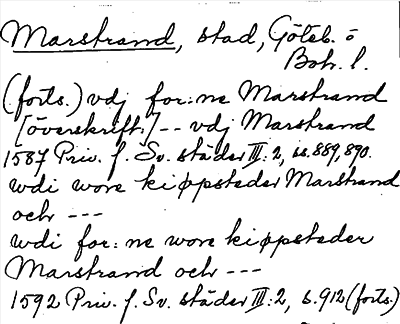 Marstrand, stad, Göteb. o
Boh. l.
(forts.) vdj for:ne Marstrand
[överskrift.] -- vdj Marstrand
1587 Priv. f. Sv. städer III:2, ss. 889, 890.
wdi wore kiøpsteder Marstrand
och ---
wdi for:ne wore kiøpsteder
Marstrand och ---
1592 Priv. f. Sv. städer III:2, s. 912 (forts.)